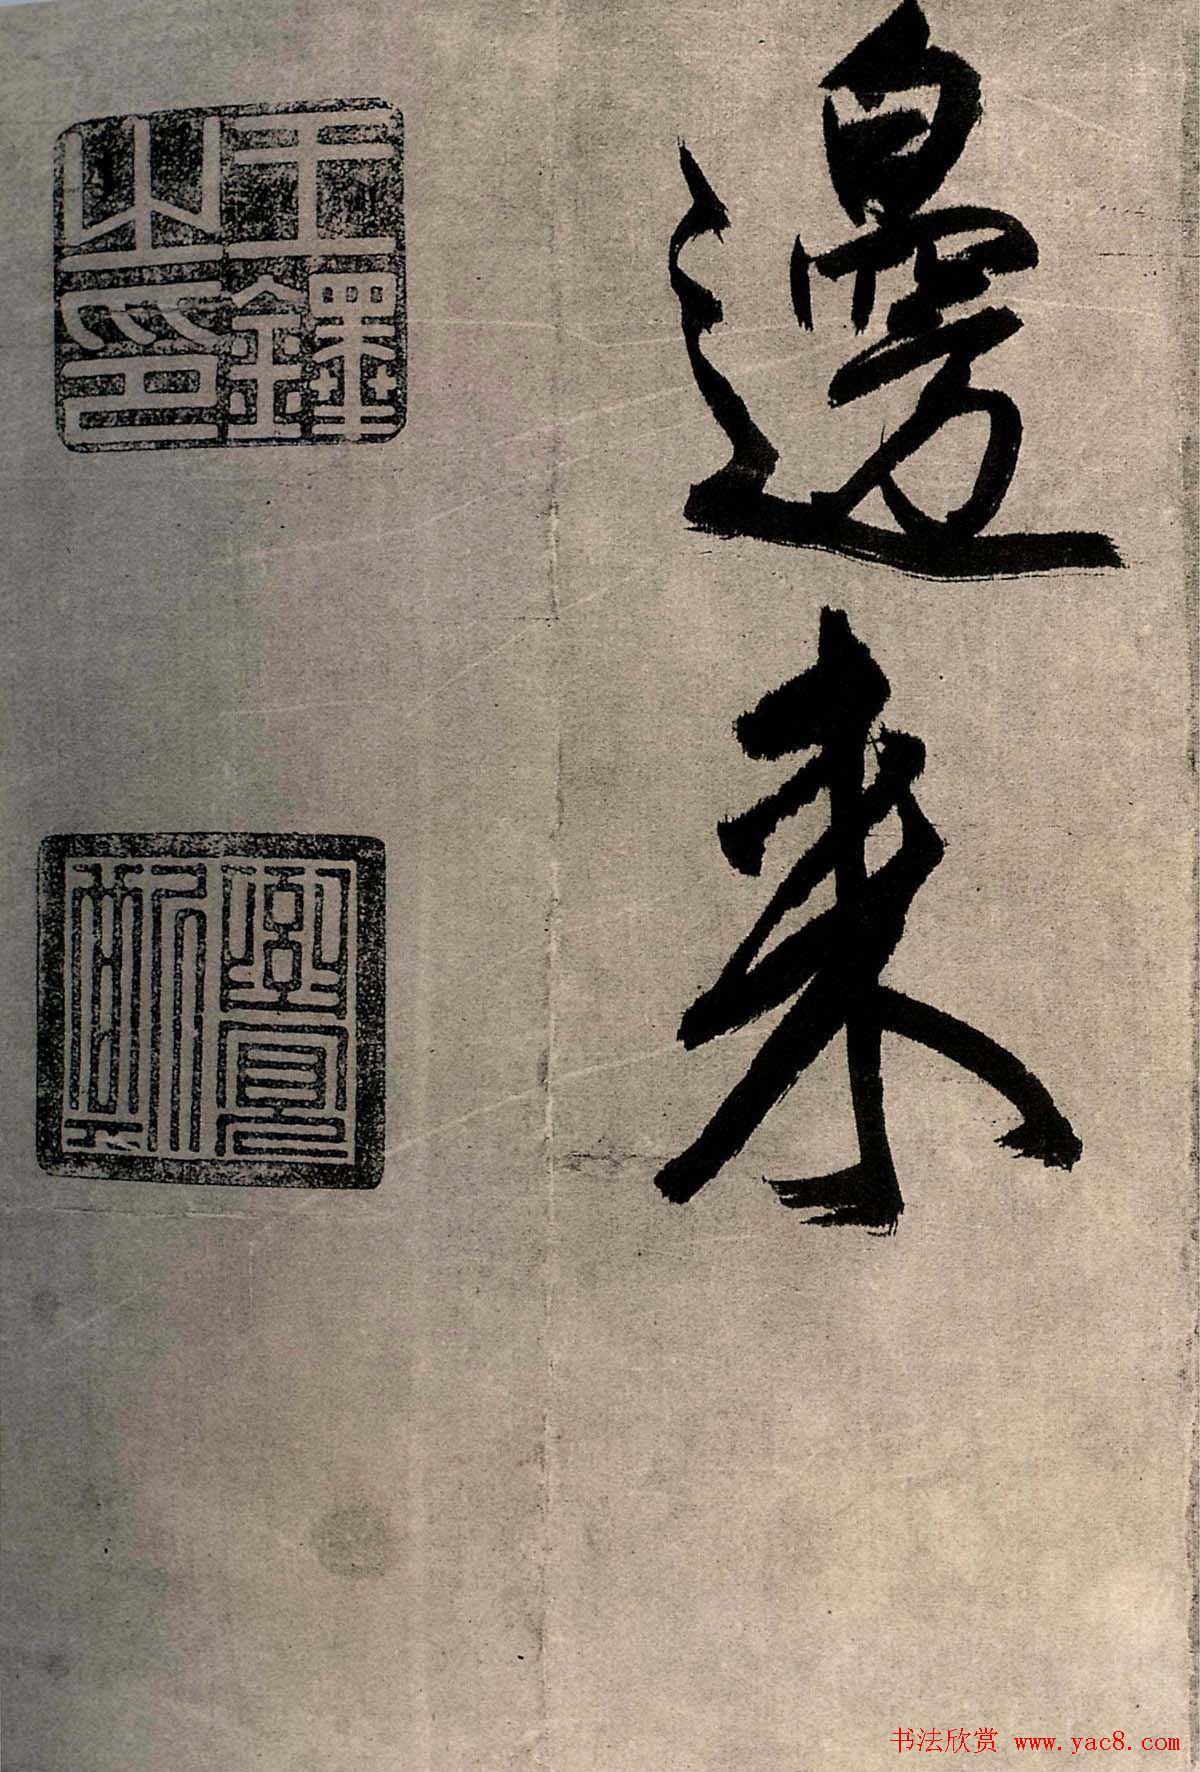 邊來
王鐸之印
书法欣赏 www.yac8.com